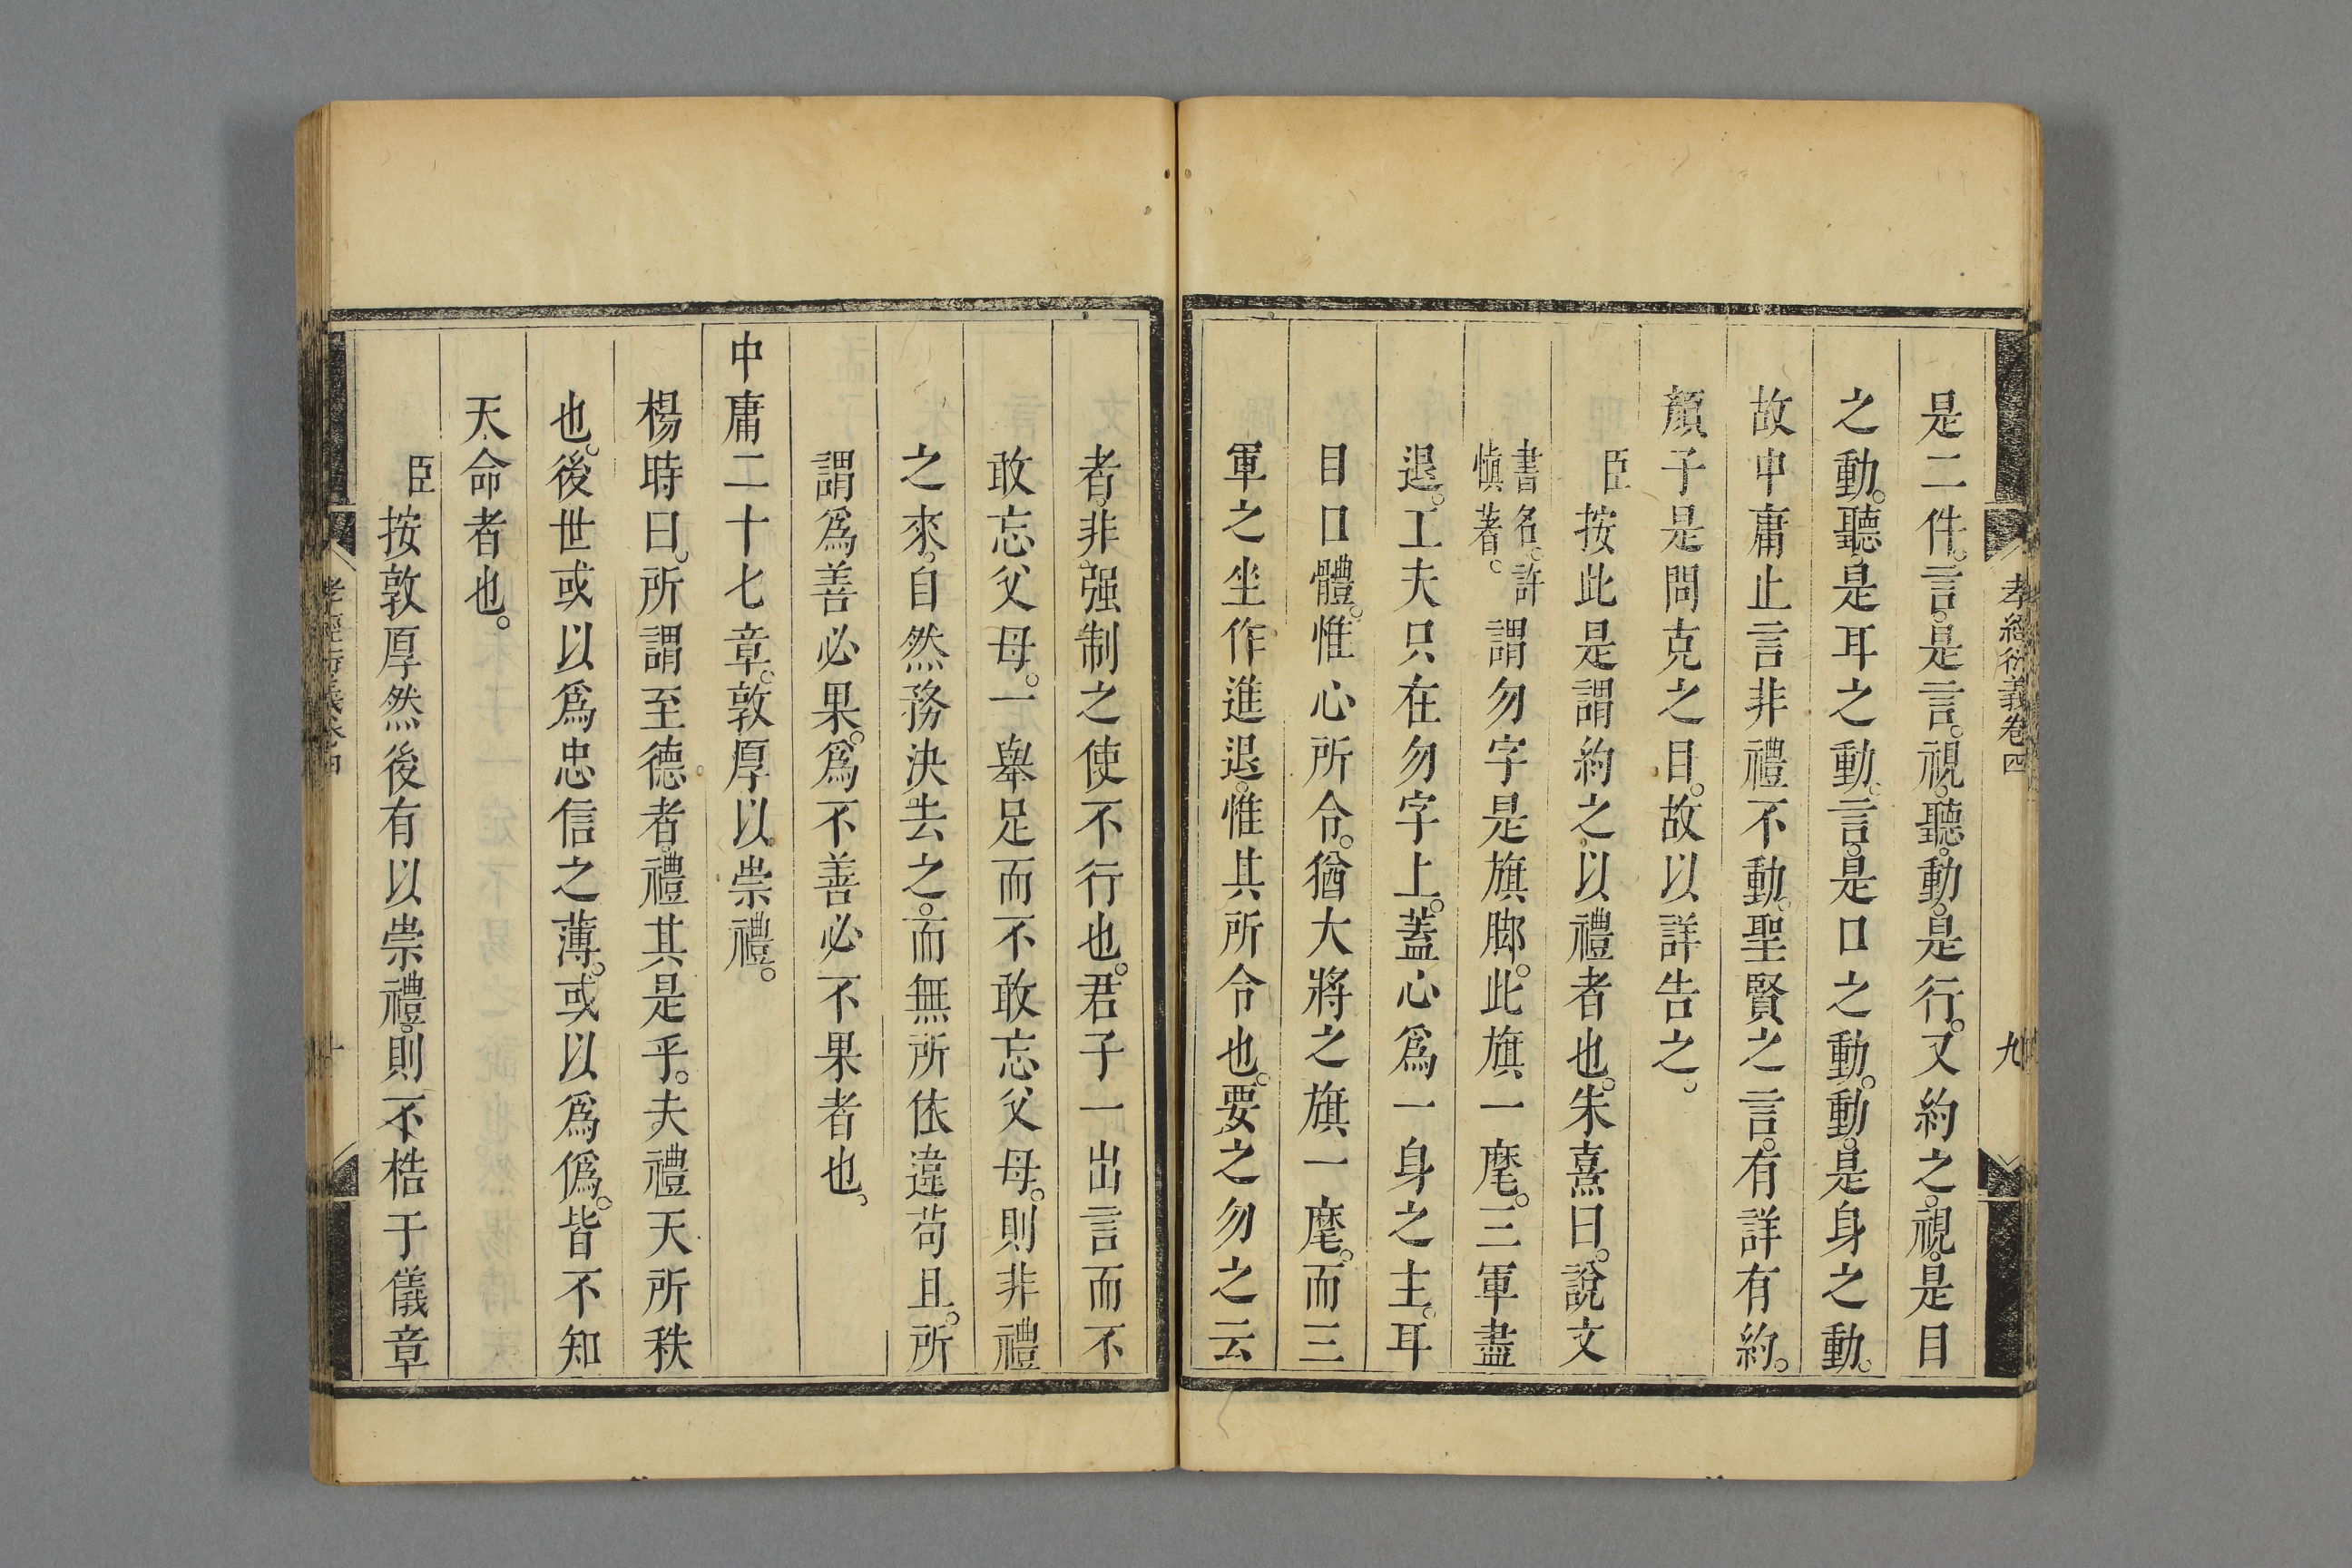 孝經衍義卷四
九
是二件。言。是言。視。聽。動。是行。又約之。視。是目
之動。聽。是耳之動。言。是口之動。動。是身之動。
故中庸止言非禮不動。聖賢之言。有詳有約。
顏子是問克之目。故以詳告之。
臣按此是謂約之以禮者也。朱熹曰。說文
書名。許
慎著。
謂勿字是旗腳。此旗一麾。三軍盡
退。工夫只在勿字上。蓋心為一身之主。耳
目口體。惟心所令。猶大將之旗一麾。而三
軍之坐作進退。惟其所令也。要之勿之云
者。非强制之使不行也。君子一出言而不
敢忘父母。一舉足而不敢忘父母。則非禮
之來。自然務決去之。而無所依違苟且。所
謂爲善必果。爲不善必不果者也。
中庸二十七章。敦厚以崇禮。
楊時曰。所謂至德者。禮其是乎。夫禮天所秩
也。後世或以爲忠信之薄。或以爲僞。皆不知
天命者也。
臣按敦厚然後有以崇禮。則不梏于儀章
孝經衍義卷四
十